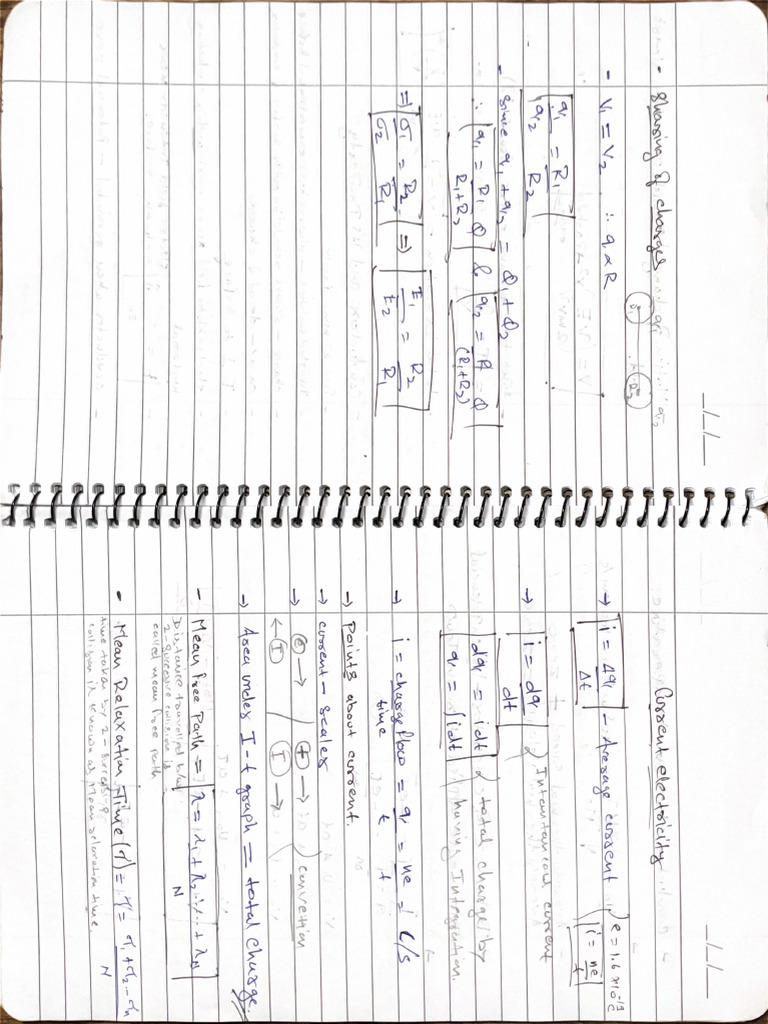 __/__/__
Sharing of charges
R1 R2
• V1 = V2 ∴ q ∝ R
q1/q2 = R1/R2
• since q1 + q2 = Q1 + Q2
∴ q1 = R1/(R1+R2) Q & q2 = R/(R1+R2) Q
⇒ σ1/σ2 = R2/R1 ⇒ E1/E2 = R2/R1
__/__/__
Current electricity
→ i = Δq/Δt – Average current e = 1.6 × 10^-19 C
i = ne/t
→ i = dq/dt } Instantaneous current
dq = idt } total charge by
q = ∫idt having Integration.
→ i = charge flow/time = q/t = ne/t = C/s
→ Points about current
→ current – scaler
→ e → / + → } convetion
← I / I →
→ Area under I-t graph = total charge.
– Mean free Path = λ = λ1 + λ2 ... + λN / N
Distance travelled b/w
2-successive collision is
called mean free path
• Mean Relaxation Time (τ) = τ = τ1 + τ2 ... τn / N
time taken by 2-successive
collision is known as Mean relaxation time.